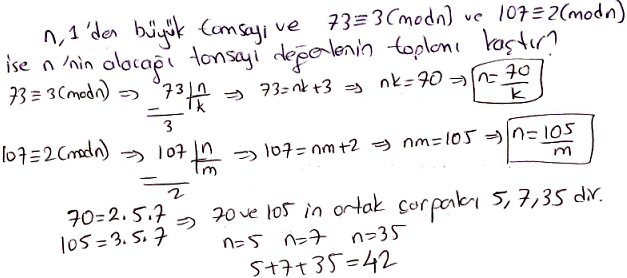 n, 1'den büyük tamsayi ve 73≡3(modn) ve 107≡2(modn)
ise n'nin alacağı tamsayi değerlerin toplamı kaçtır?
73≡3(modn) ⇒ 73 | n ⇒ 73=nk+3 ⇒ nk=70 ⇒ n=70/k
k
3
107≡2(modn) ⇒ 107 | n ⇒ 107=nm+2 ⇒ nm=105 ⇒ n=105/m
m
2
70=2.5.7 ⇒ 70 ve 105 in ortak çarpaları 5, 7, 35 dir.
105=3.5.7 n=5 n=7 n=35
5+7+35=42